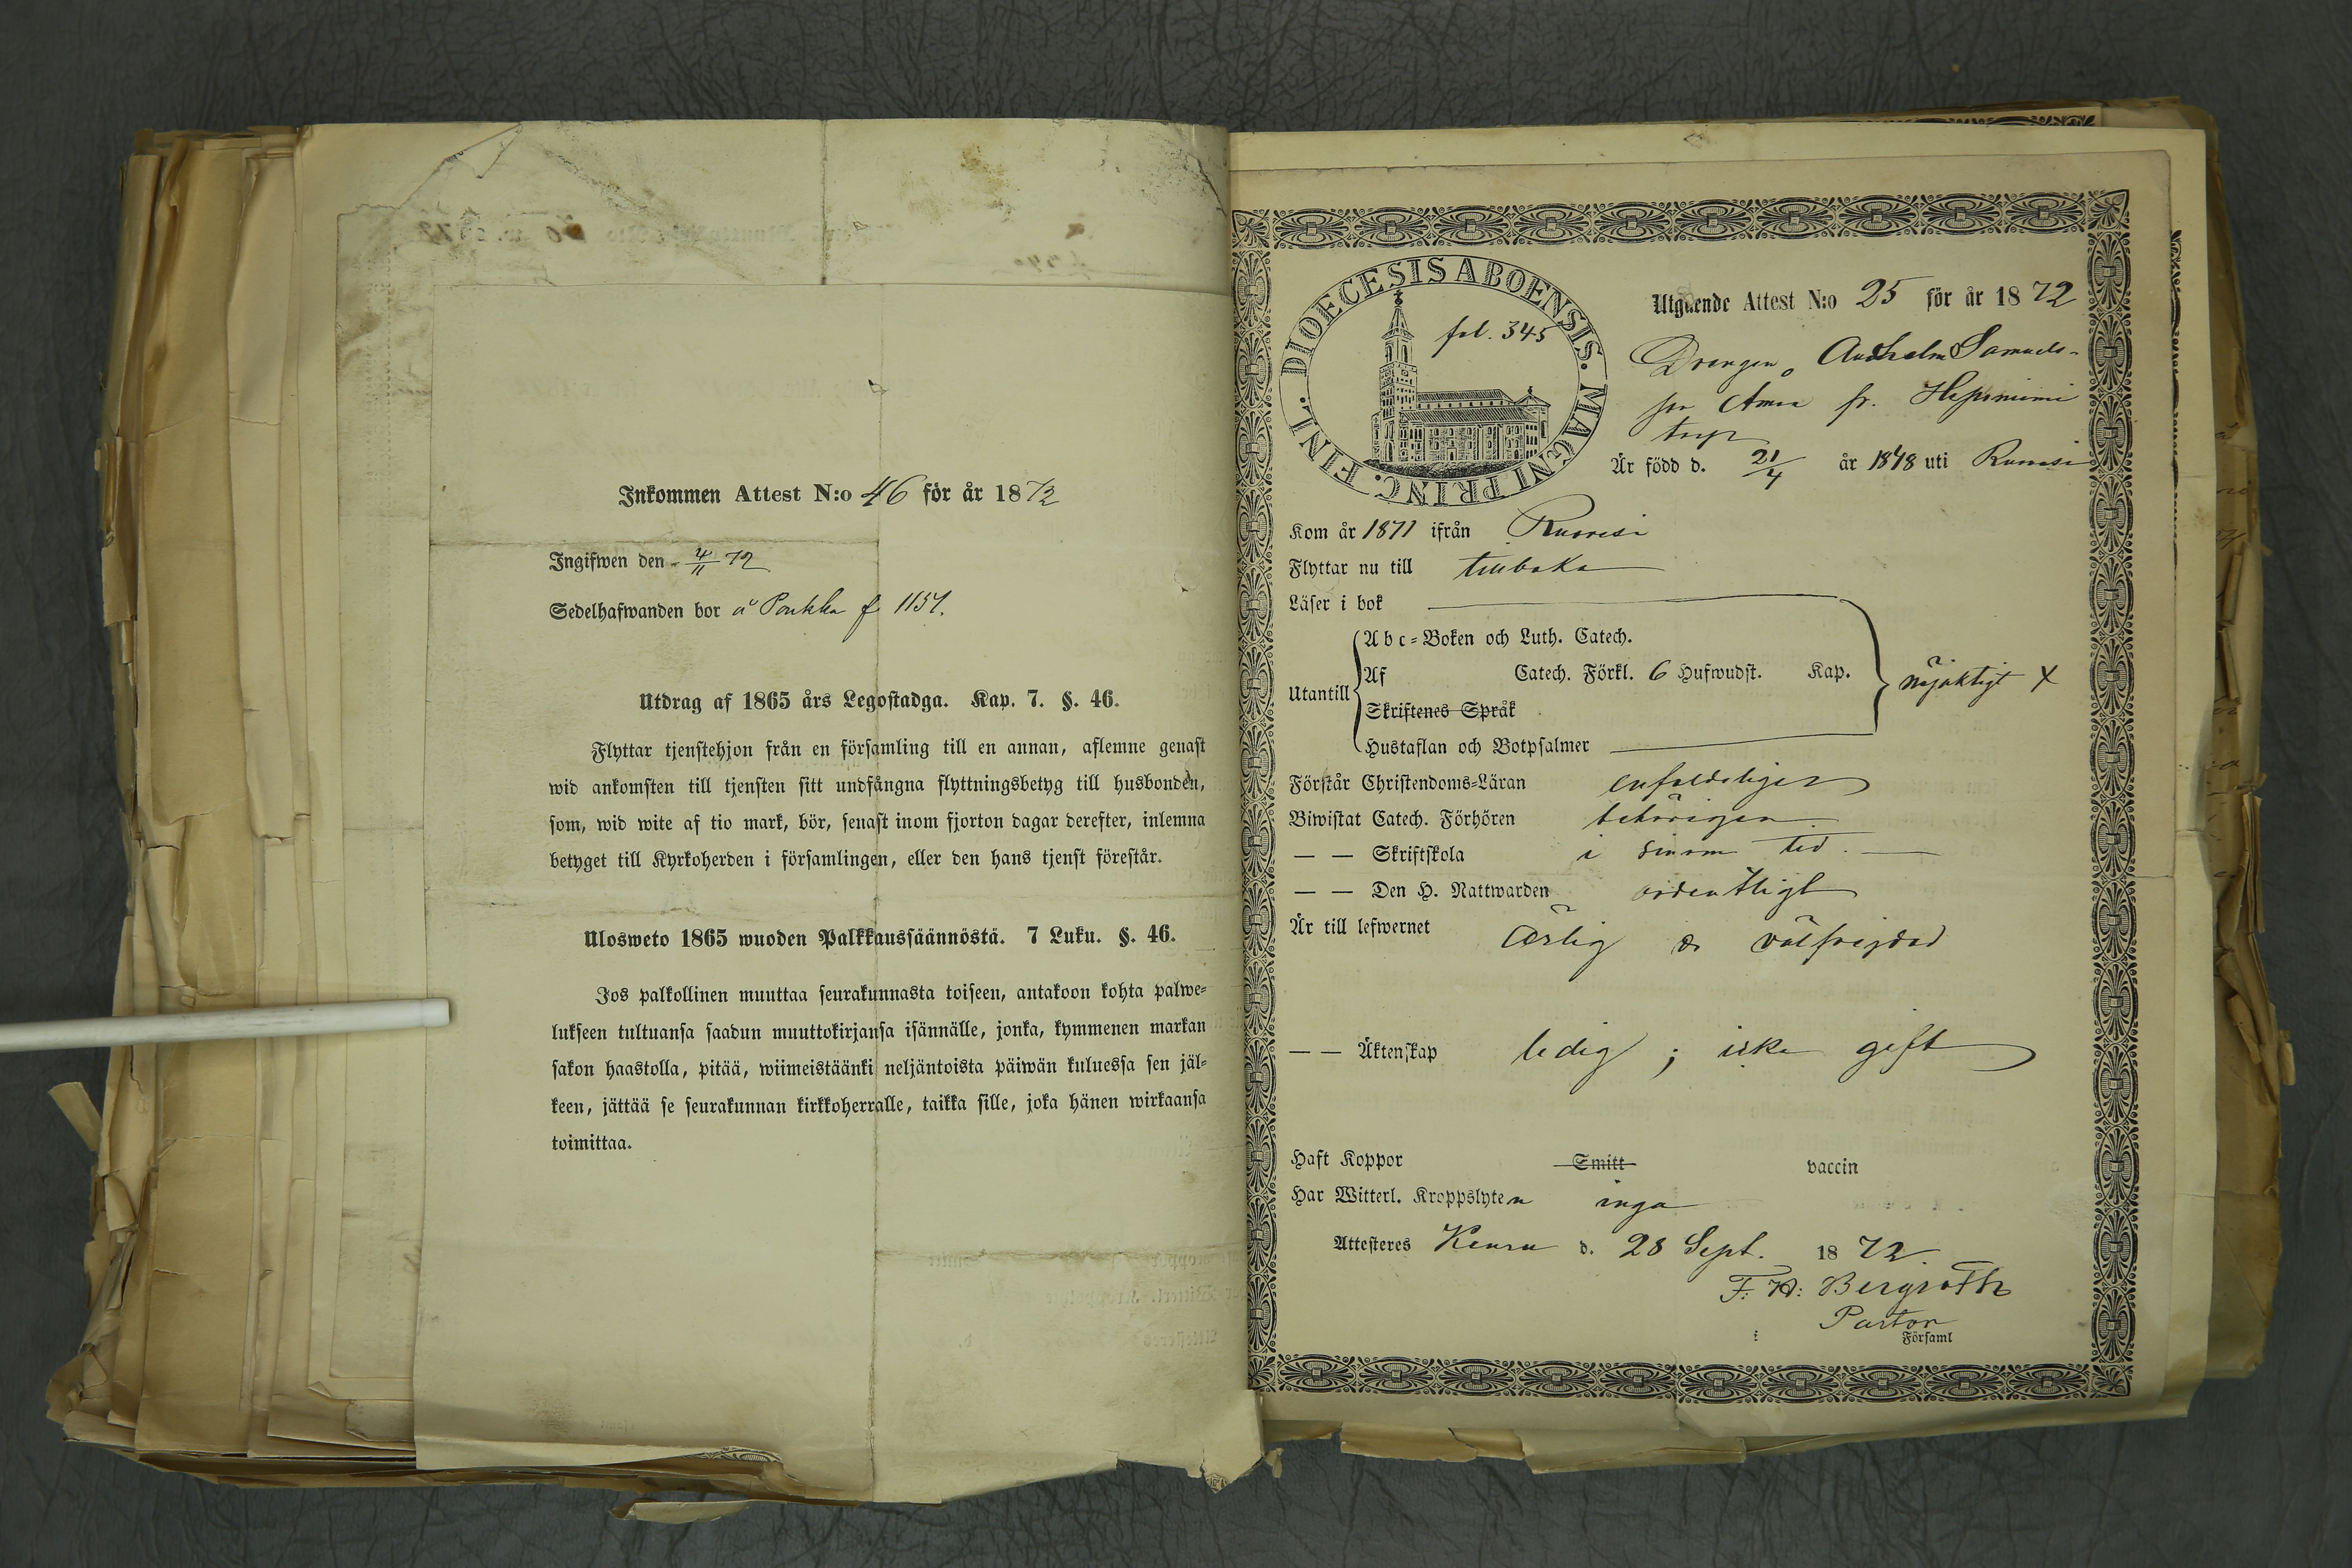 Inkommen Attest N:o 46 för år 1872
Ingifwen den 4/11 72
Sedelhafwanden bor å Poukka f. 1151.
Utdrag af 1865 års Legostadga. Kap. 7. §. 46.
Flyttar tjenstehjon från en församling till en annan, aflemne genast
wid ankomsten till tjensten sitt undfångna flyttningsbetyg till husbonden,
som, wid wite af tio mark, bör, senast inom fjorton dagar derefter, inlemna
betyget till Kyrkoherden i församlingen, eller den hans tjenst förestår.
Ulosweto 1865 wuoden Palkkaussäännöstä. 7 Luku. §. 46.
Jos palkollinen muuttaa seurakunnasta toiseen, antakoon kohta palwe=
lukseen tultuansa saadun muuttokirjansa isännälle, jonka, kymmenen markan
sakon haastolla, pitää, wiimeistäänki neljäntoista päiwän kuluessa sen jäl=
keen, jättää se seurakunnan kirkkoherralle, taikka sille, joka hänen wirkaansa
toimittaa.
DIOECESIS ABOENSIS. MAGNI PRINC. FINL.
fol. 345
Utgående Attest N:o 25 för år 1872
Drengen Samuels-
son fr.
torp
Är född d. 21/4 år 1848 uti Ruovesi
Kom år 1871 ifrån Ruovesi
Flyttar nu till tillbaka
Läser i bok
Utantill
Abc=Boken och Luth. Catech.
Af Catech. Förkl. 6 Hufwudst. Kap.
nöjaktigt X
Skriftenes Språk
Hustaflan och Botpsalmer
Förstår Christendoms=Läran enfaldeligen
Biwistat Catech. Förhören behörigen
— — Skriftskola i sinom tid.
— — Den H. Nattwarden ordentligt
Är till lefwernet ärlig o. välfrejdad
— — Äktenskap ledig; icke gift
Haft Koppor Smitt vaccin
Har Witterl. Kroppslyten inga
Attesteres Keuru d. 28 Sept. 1872
F. W: Bergroth
Pastor
i Församl